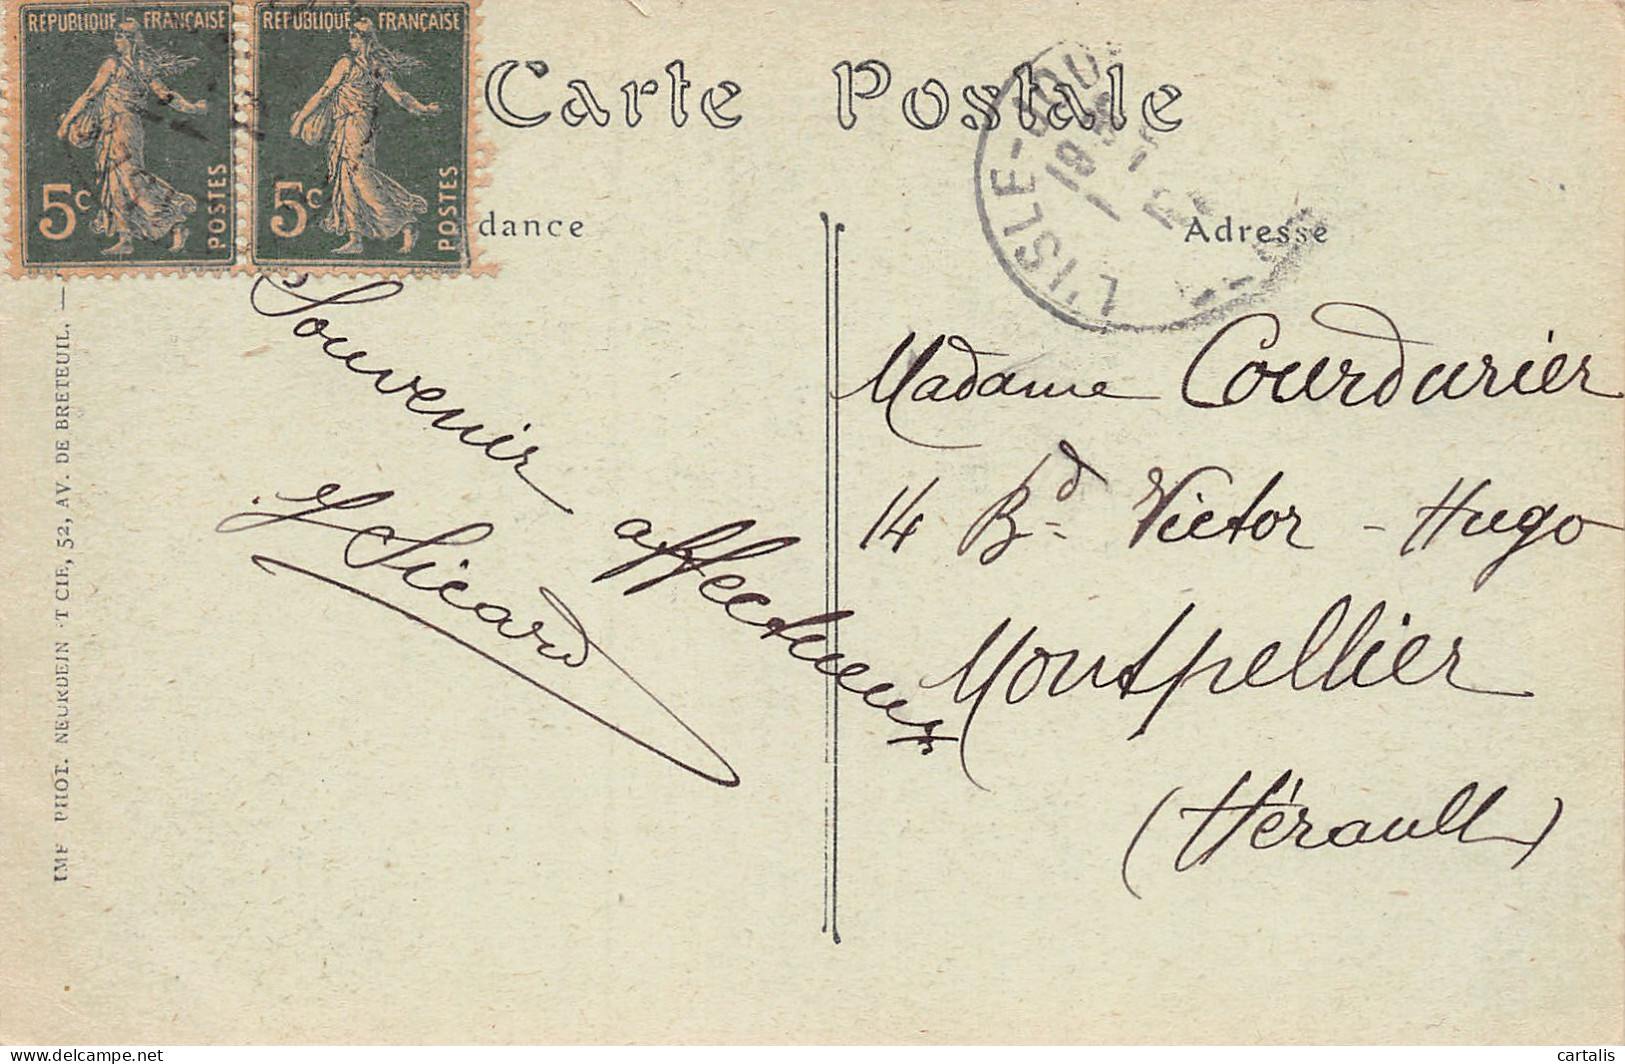 RÉPUBLIQUE FRANÇAISE
5c
POSTES
RÉPUBLIQUE FRANÇAISE
5c
POSTES
Carte Postale
dance
Adresse
L'ISLE-JOU
Souvenir affectueux
Sicard
Madame Courdurier
14 Bd Victor-Hugo
Montpellier
(Hérault)
IMP PHOT. NEURDEIN ET CIE, 52, AV. DE BRETEUIL. —
cartalis
delcampe.net